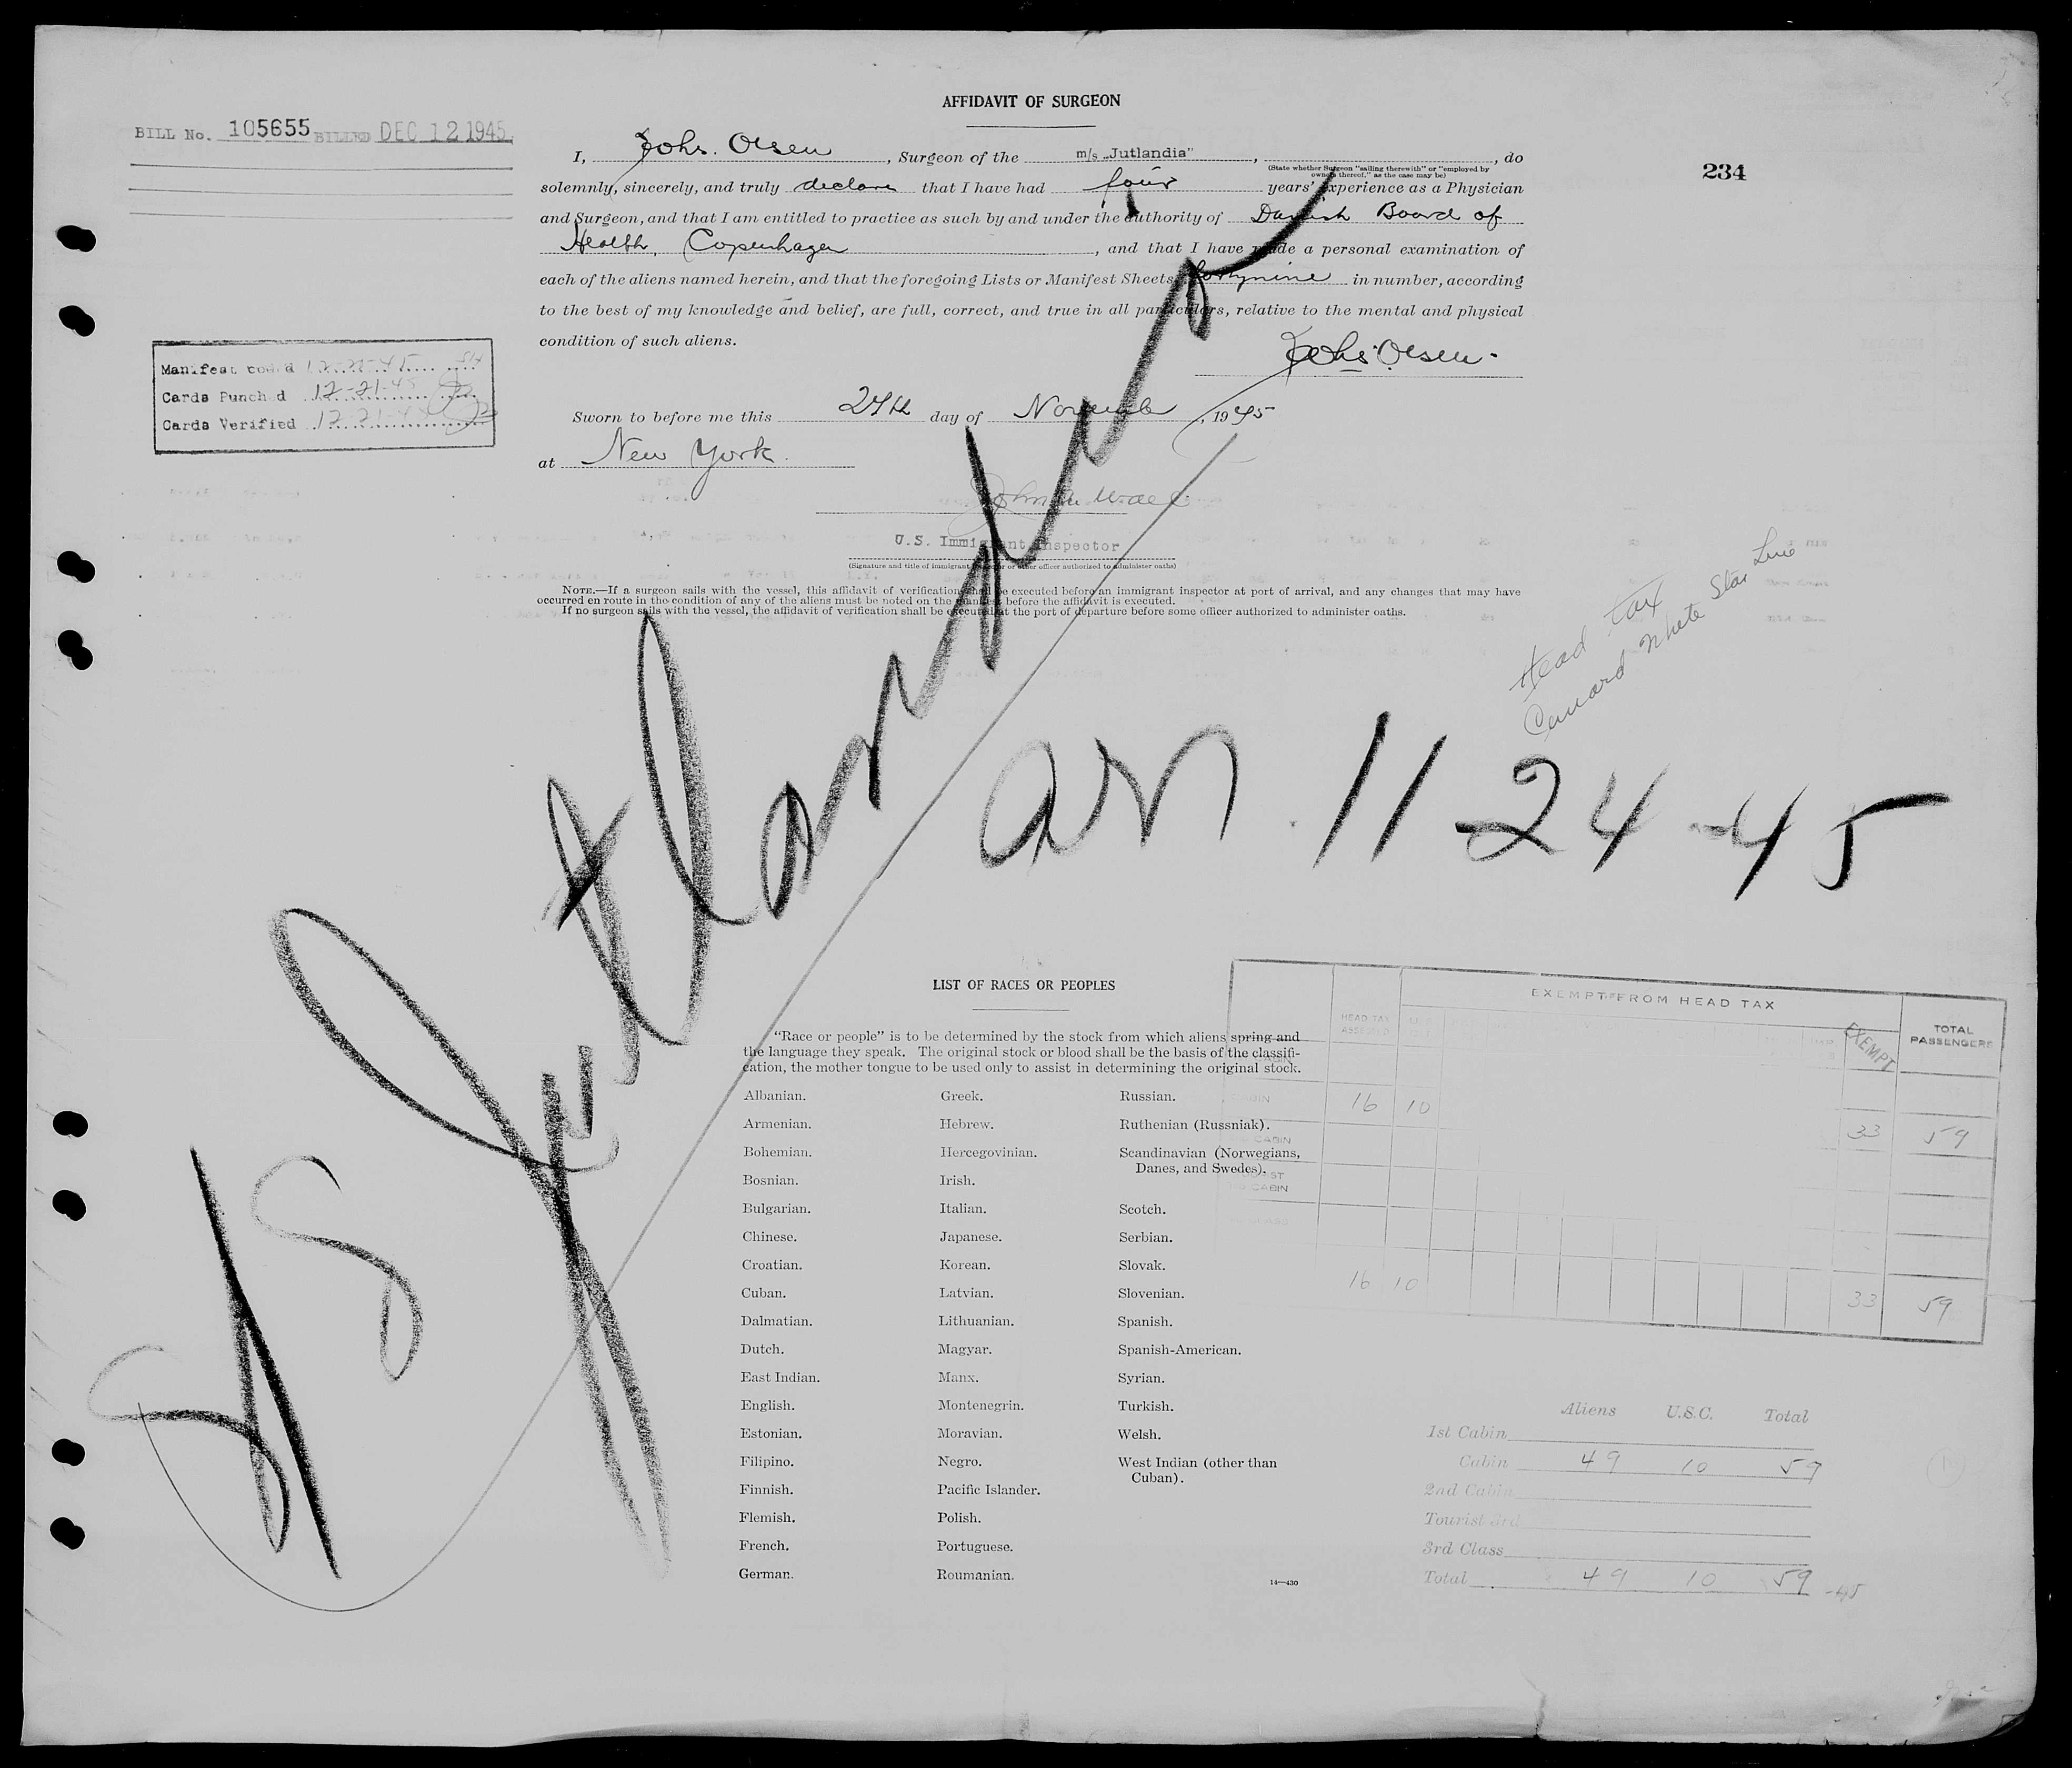 AFFIDAVIT OF SURGEON
BILL No. 105655 BILLED DEC 12 1945
234
I, Johs. Olsen, Surgeon of the m/s „Jutlandia", , do
(State whether Surgeon "sailing therewith" or "employed by
owners thereof," as the case may be)
solemnly, sincerely, and truly declare that I have had four years' experience as a Physician
and Surgeon, and that I am entitled to practice as such by and under the authority of Danish Board of
Health, Copenhagen, and that I have made a personal examination of
each of the aliens named herein, and that the foregoing Lists or Manifest Sheets, fortynine in number, according
to the best of my knowledge and belief, are full, correct, and true in all particulars, relative to the mental and physical
condition of such aliens.
Johs. Olsen.
Manifest 
Cards Punched 12-21-45
Cards Verified 12-21-45
Sworn to before me this 24th day of November, 1945
at New York.
U.S. Immigrant Inspector
(Signature and title of immigrant inspector or other officer authorized to administer oaths)
NOTE.—If a surgeon sails with the vessel, this affidavit of verification shall be executed before an immigrant inspector at port of arrival, and any changes that may have
occurred en route in the condition of any of the aliens must be noted on the manifest before the affidavit is executed.
If no surgeon sails with the vessel, the affidavit of verification shall be executed at the port of departure before some officer authorized to administer oaths.
Head tax
Cunard White Star Line
S/S Jutlandia
arr. 11-24-45
LIST OF RACES OR PEOPLES
"Race or people" is to be determined by the stock from which aliens spring and
the language they speak. The original stock or blood shall be the basis of the classifi-
cation, the mother tongue to be used only to assist in determining the original stock.
Albanian.
Armenian.
Bohemian.
Bosnian.
Bulgarian.
Chinese.
Croatian.
Cuban.
Dalmatian.
Dutch.
East Indian.
English.
Estonian.
Filipino.
Finnish.
Flemish.
French.
German.
Greek.
Hebrew.
Hercegovinian.
Irish.
Italian.
Japanese.
Korean.
Latvian.
Lithuanian.
Magyar.
Manx.
Montenegrin.
Moravian.
Negro.
Pacific Islander.
Polish.
Portuguese.
Roumanian.
Russian.
Ruthenian (Russniak).
Scandinavian (Norwegians,
Danes, and Swedes).
Scotch.
Serbian.
Slovak.
Slovenian.
Spanish.
Spanish-American.
Syrian.
Turkish.
Welsh.
West Indian (other than
Cuban).
14—430
EXEMPT FROM HEAD TAX
HEAD TAX
ASSESSED
EXEMPT
TOTAL
PASSENGERS
CABIN 16 10 33 59
CABIN
CABIN
16 10 33 59
Aliens U.S.C. Total
1st Cabin
Cabin 49 10 59
2nd Cabin
Tourist 3rd
3rd Class
Total 49 10 59